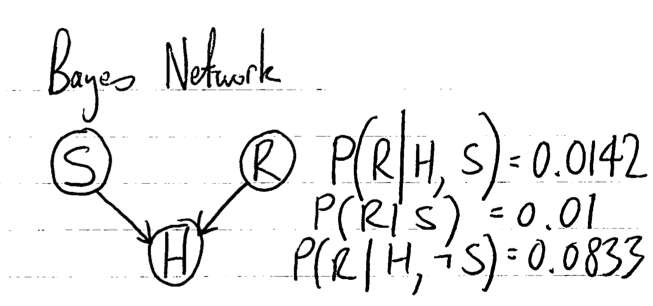 Bayes Network
S R P(R|H, S) = 0.0142
P(R|S) = 0.01
H P(R|H, ¬S) = 0.0833